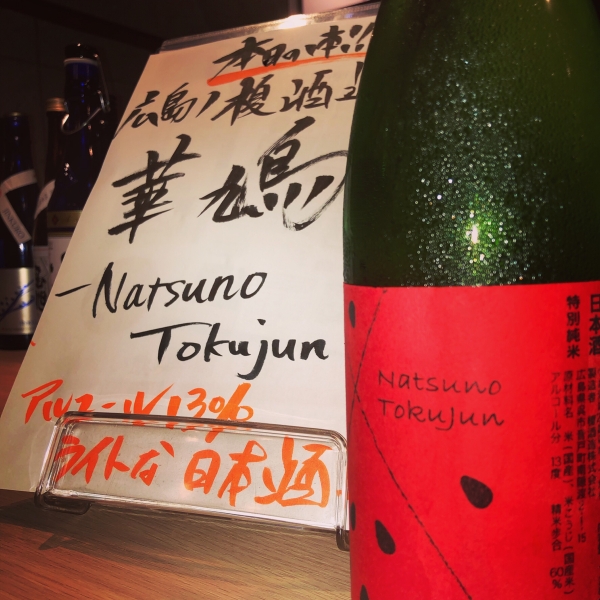 本日の
広島ノ榎酒造
華鳩
-Natsuno
Tokujun
アルコール13%
ライトな日本酒
Natsuno
Tokujun
日本酒
特別純米
製造者 榎酒造株式会社
広島県呉市音戸町南隠渡2-1-15
原材料名 米(国産)、米こうじ(国産米)
アルコール分 13度 精米歩合 60%